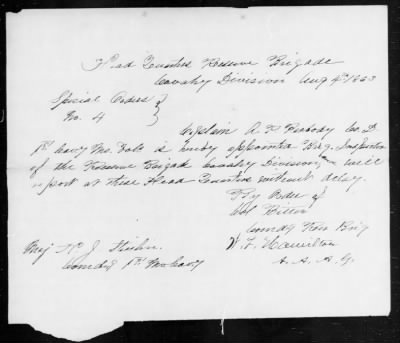 Head Quarters Reserve Brigade
Cavalry Division Aug 4th 1863
Special Orders
No. 4
Captain A. R. Peabody Co. D
1st Cavy Mo. Vols is hereby appointed Brig. Inspector
of the Reserve Brigade Cavalry Division, will
report at these Head Quarters without delay
By Order of
Col
Comdg Res Brig
Maj
W. F. Hamilton
Comdg 1st Mo Cavy
A. A. A. G.